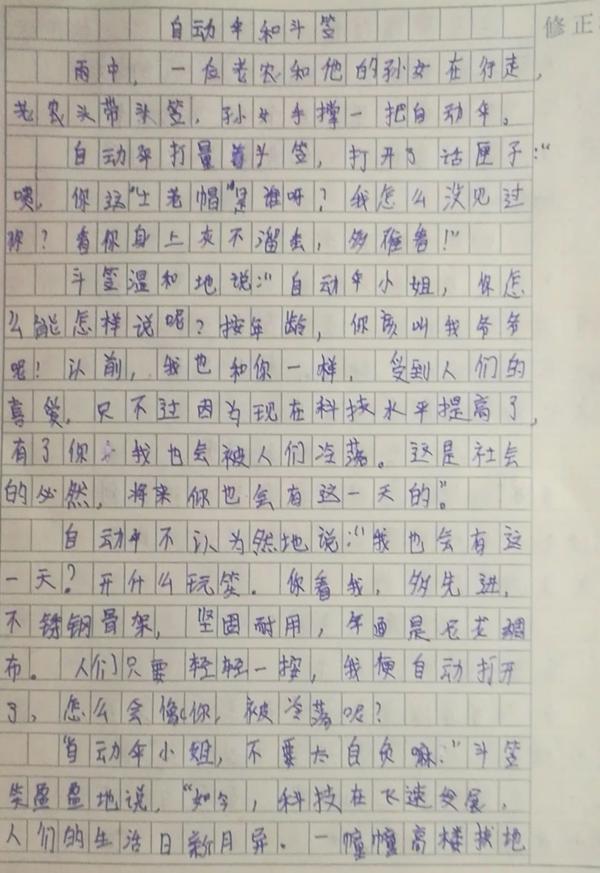 自动伞和斗笠
修正
雨中，一位老农和他的孙女在行走，
老农头带头笠，孙女手撑一把自动伞。
自动伞打量着头笠，打开了话匣子：“
噢，你这“土老帽”是谁呀？我怎么没见过
你？看你身上灰不溜去，多难看！”
斗笠温和地说：“自动伞小姐，你怎
么能怎样说呢？按年龄，你该叫我爷爷
呢！认前，我也和你一样，受到人们的
喜爱，只不过因为现在科技水平提高了，
有了你，我也会被人们冷落。这是社会
的必然，将来你也会有这一天的”。
自动伞不认为然地说：“我也会有这
一天？开什么玩笑。你看我，多先进，
不锈钢骨架，坚固耐用，伞面是尼龙绸
布。人们只要轻轻一按，我便自动打开
了，怎么会像你，被冷落呢？
“自动伞小姐，不要太自负嘛：”斗笠
笑盈盈地说，“如今，科技在飞速发展，
人们的生活日新月异。一幢幢高楼拔地